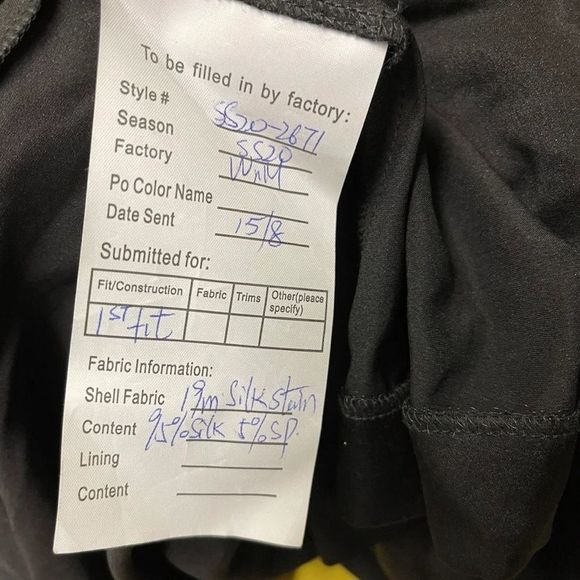 To be filled in by factory:
Style # SS20-2671
Season SS20
Factory
Po Color Name
Date Sent 15/8
Submitted for:
Fit/Construction Fabric Trims Other(pleace specify)
1ST fit
Fabric Information:
Shell Fabric 19m Silk stain
Content 95%Silk 5%SP.
Lining
Content